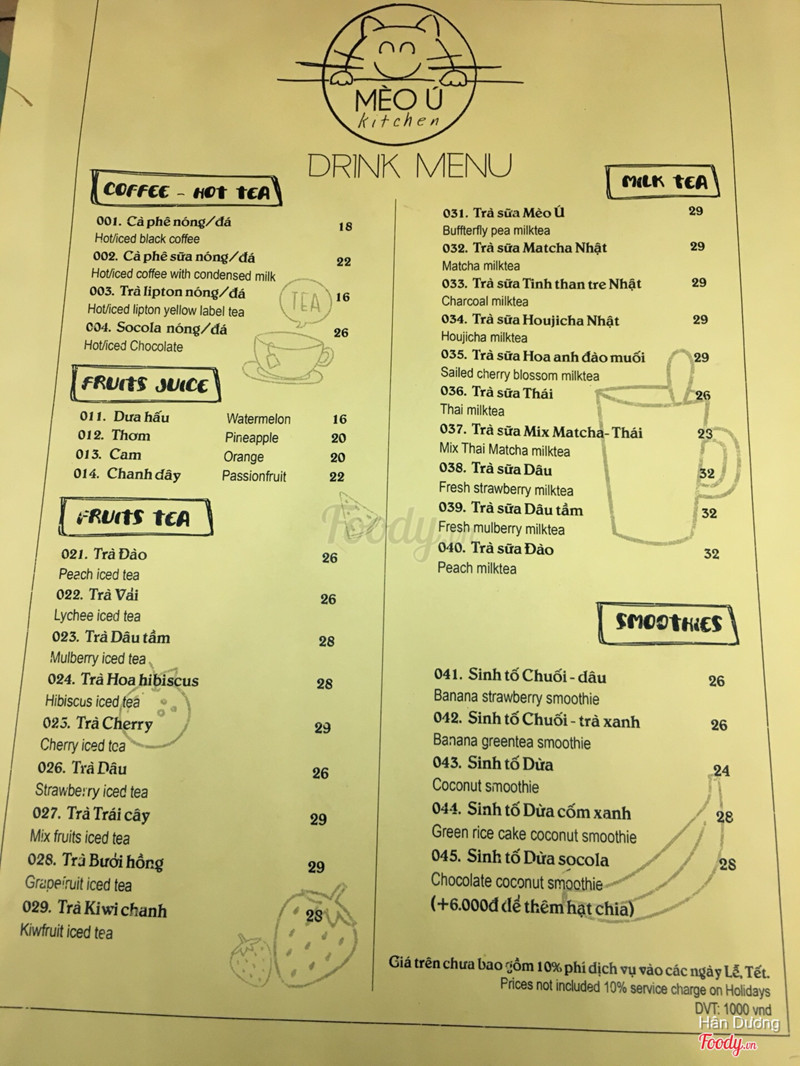 MÈO Ú
kitchen
DRINK MENU
COFFEE - HOT TEA
001. Cà phê nóng/đá 18
Hot/iced black coffee
002. Cà phê sữa nóng/đá 22
Hot/iced coffee with condensed milk
003. Trà lipton nóng/đá 16
Hot/iced lipton yellow label tea
004. Socola nóng/đá 26
Hot/iced Chocolate
TEA
FRUITS JUICE
011. Dưa hấu Watermelon 16
012. Thơm Pineapple 20
013. Cam Orange 20
014. Chanh dây Passionfruit 22
FRUITS TEA
021. Trà Đào 26
Peach iced tea
022. Trà Vải 26
Lychee iced tea
023. Trà Dâu tằm 28
Mulberry iced tea
024. Trà Hoa hibiscus 28
Hibiscus iced tea
025. Trà Cherry 29
Cherry iced tea
026. Trà Dâu 26
Strawberry iced tea
027. Trà Trái cây 29
Mix fruits iced tea
028. Trà Bưởi hồng 29
Grapefruit iced tea
029. Trà Kiwi chanh 28
Kiwfruit iced tea
MILK TEA
031. Trà sữa Mèo Ú 29
Buffterfly pea milktea
032. Trà sữa Matcha Nhật 29
Matcha milktea
033. Trà sữa Tinh than tre Nhật 29
Charcoal milktea
034. Trà sữa Houjicha Nhật 29
Houjicha milktea
035. Trà sữa Hoa anh đào muối 29
Sailed cherry blossom milktea
036. Trà sữa Thái 26
Thai milktea
037. Trà sữa Mix Matcha-Thái 23
Mix Thai Matcha milktea
038. Trà sữa Dâu 32
Fresh strawberry milktea
039. Trà sữa Dâu tằm 32
Fresh mulberry milktea
040. Trà sữa Đào 32
Peach milktea
SMOOTHIES
041. Sinh tố Chuối - dâu 26
Banana strawberry smoothie
042. Sinh tố Chuối - trà xanh 26
Banana greentea smoothie
043. Sinh tố Dừa 24
Coconut smoothie
044. Sinh tố Dừa cốm xanh 28
Green rice cake coconut smoothie
045. Sinh tố Dừa socola 28
Chocolate coconut smoothie
(+6.000đ để thêm hạt chia)
Giá trên chưa bao gồm 10% phí dịch vụ vào các ngày Lễ, Tết.
Prices not included 10% service charge on Holidays
DVT: 1000 vnd
Foody.vn
Hân Dương
Foody.vn